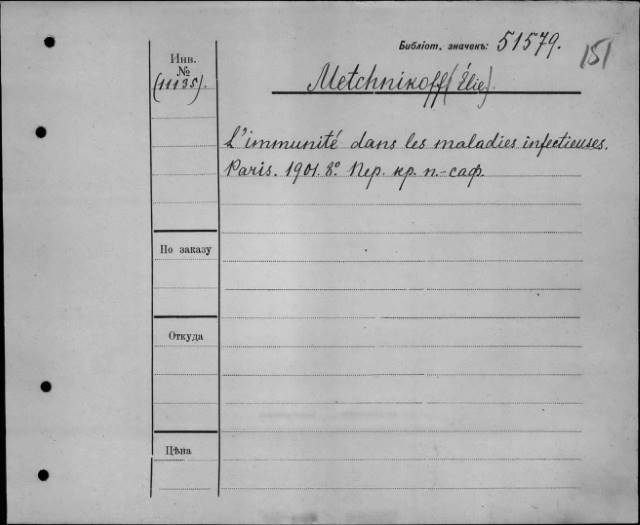 Библіот. значекъ: 51579.
151
Инв.
№
(11135).
Metchnikoff (Élie).
L'immunité dans les maladies infectieuses.
Paris. 1901. 8º. Пер. кр. п.-саф.
По заказу
Откуда
Цѣна